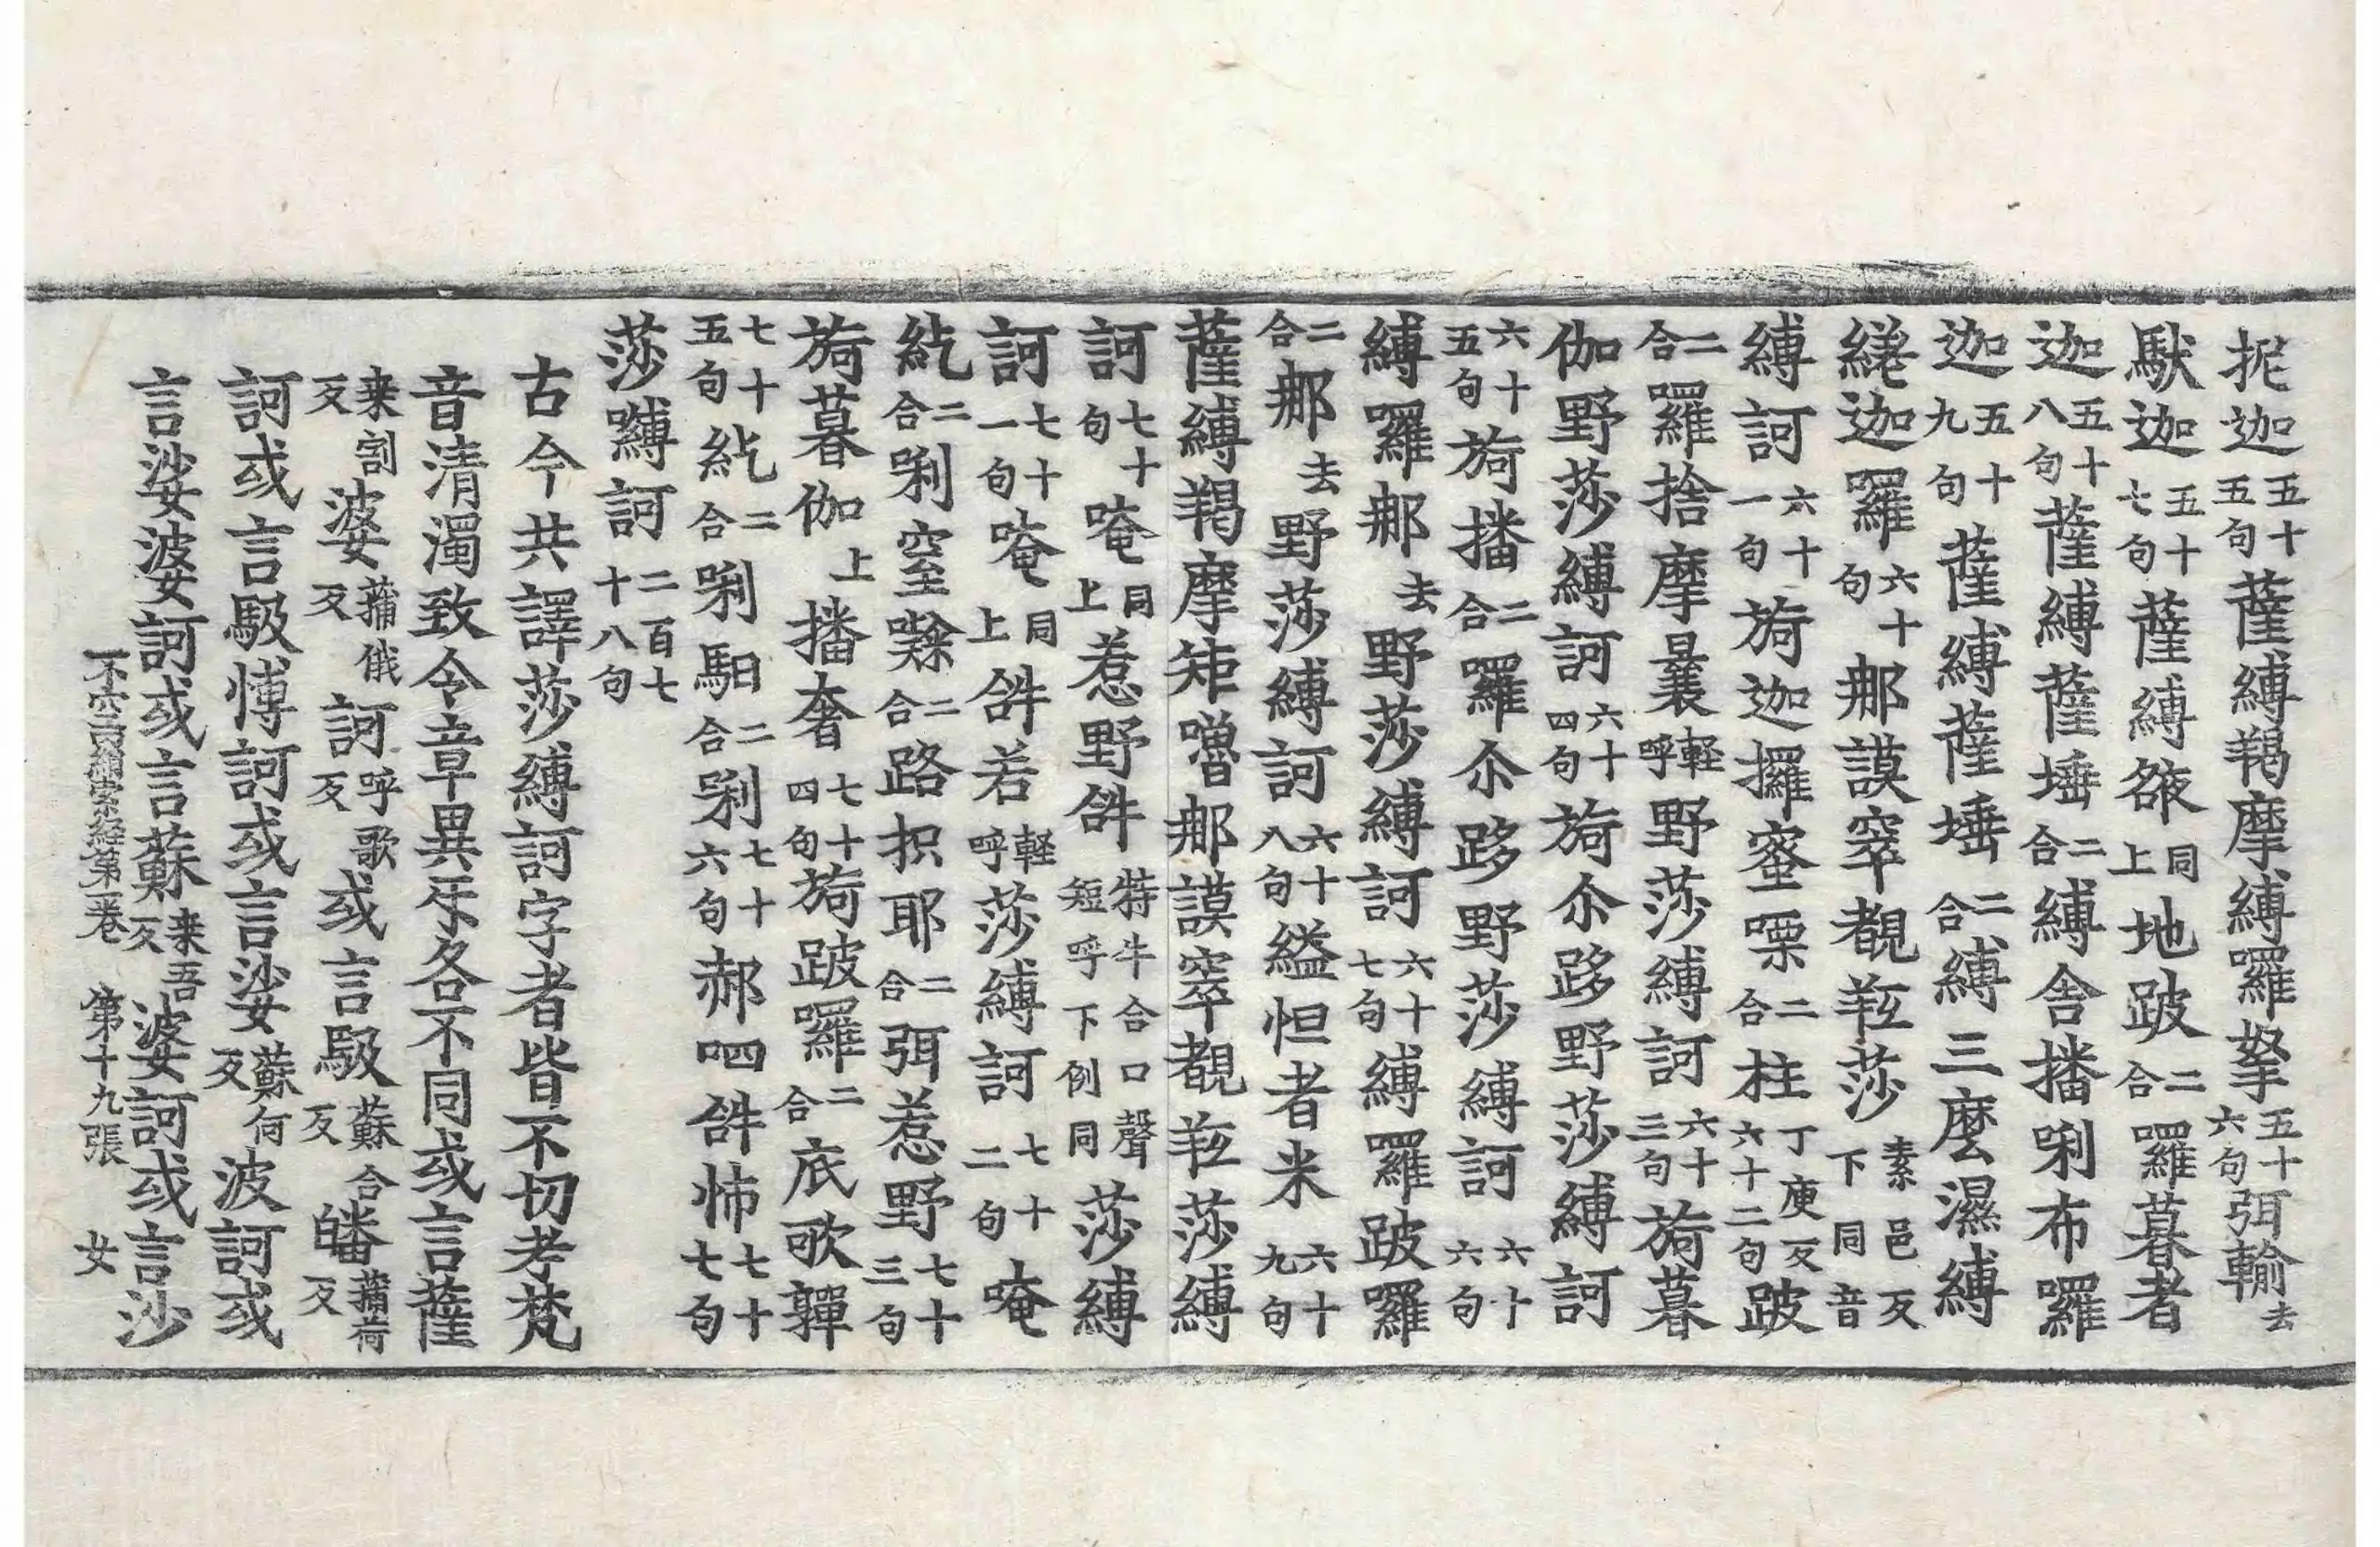 抳迦五十五句薩縛羯摩縛囉拏五十六句弭輸去
馱迦五十七句薩縛䧟同上地跛二合囉暮者
迦五十八句薩縛薩埵二合縛舍播唎布囉
迦五十九句薩縛薩埵二合縛三麼濕縛
緩迦羅六十句那謨窣覩𦍕莎素邑反下同音
縛訶六十一句旖迦攞蜜㗚二合柱丁庾反六十二句跛
二合羅捨摩曩輕呼野莎縛訶六十三句旖暮
伽野莎縛訶六十四句旖尒跢野莎縛訶
六十五句旖播二合羅尒跢野莎縛訶六十六句
縛囉那去野莎縛訶六十七句縛囉跛囉
二合那去野莎縛訶六十八句縊怛者米六十九句
薩縛羯摩矩嚕那謨窣覩𦍕莎縛
訶七十句唵同上惹野𤙖特牛合口聲短呼下例同莎縛
訶七十一句唵同上𤙖若輕呼莎縛訶七十二句唵
紇二合唎窒㘑二合路抧耶二合弭惹野七十三句
旖暮伽上播奢七十四句旖跛囉二合底歌嚲
七十五句紇二合唎馹二合唎七十六句郝呬𤙖怖七十七句
莎嚩訶二百七十八句
古今共譯莎縛訶字者皆不切考梵
音清濁致令章異斥各不同或言薩
来割反婆蒱俄反訶呼歌反或言馺蘇合反皤蒱荷反
訶或言馺愽訶或言娑蘇何反波訶或
言娑婆訶或言蘇来吾反婆訶或言沙
不空羂索經第一卷 第十九張 女